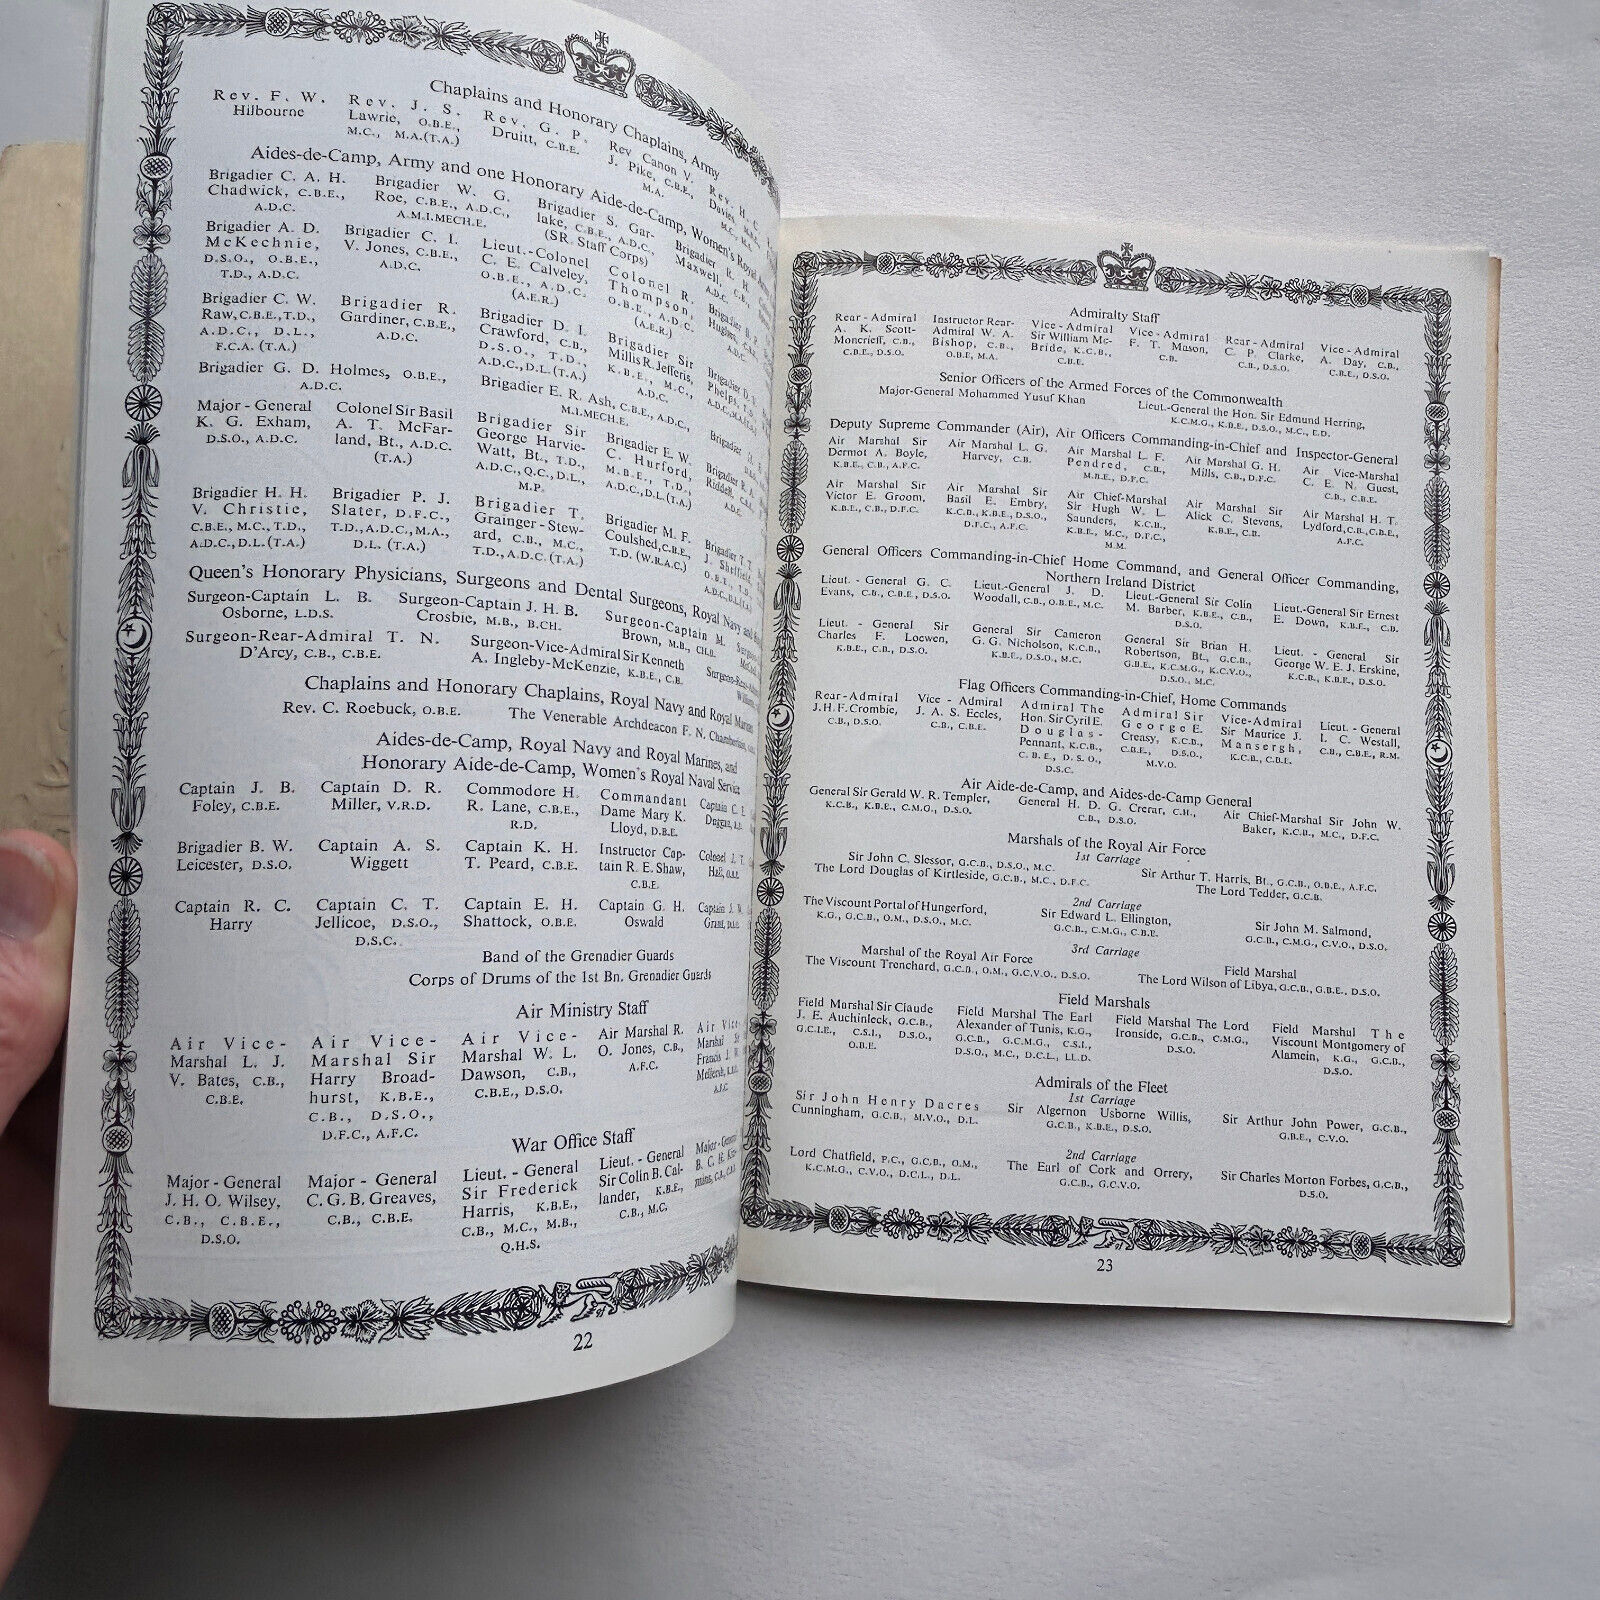 Chaplains and Honorary Chaplains, Army
Rev. F. W. Rev. J. S. Rev. G. P. Rev Canon V. Rev. H. C.
Hilbourne Lawrie, O.B.E., Druitt, C.B.E. J. Pike, C.B.E., Davies,
M.C., M.A.(T.A.) M.A.
Aides-de-Camp, Army and one Honorary Aide-de-Camp, Women's Royal Army
Brigadier C. A. H. Brigadier W. G. Brigadier S. Gar- Brigadier R. H.
Chadwick, C.B.E., Roe, C.B.E., A.D.C., lake, C.B.E., A.D.C., Maxwell, C.B.,
A.D.C. A.M.I.MECH.E. (SR. Staff Corps) A.D.C.
Brigadier A. D. Brigadier C. I. Lieut.-Colonel Colonel R.
McKechnie, V. Jones, C.B.E., C. E. Calveley, Thompson,
D.S.O., O.B.E., A.D.C. O.B.E., A.D.C. O.B.E., A.D.C.
T.D., A.D.C. (A.E.R.) (A.E.R.)
Brigadier C. W. Brigadier R. Brigadier D. I. Brigadier Sir
Raw, C.B.E., T.D., Gardiner, C.B.E., Crawford, C.B., Millis R. Jefferis,
A.D.C., D.L., A.D.C. D.S.O., T.D., K.B.E., M.C.,
F.C.A. (T.A.) A.D.C., D.L. (T.A.) A.D.C.
Brigadier G. D. Holmes, O.B.E., Brigadier E. R. Ash, C.B.E., A.D.C.,
A.D.C. M.I.MECH.E.
Major - General Colonel Sir Basil Brigadier Sir Brigadier E. W.
K. G. Exham, A. T. McFar- George Harvie- C. Hurford,
D.S.O., A.D.C. land, Bt., A.D.C. Watt, Bt., T.D., M.B.E., T.D.,
(T.A.) A.D.C., Q.C., D.L., A.D.C., D.L. (T.A.)
M.P.
Brigadier H. H. Brigadier P. J. Brigadier T. Brigadier M. F.
V. Christie, Slater, D.F.C., Grainger - Stew- Coulshed, C.B.E.,
C.B.E., M.C., T.D., T.D., A.D.C., M.A., ard, C.B., M.C., T.D. (W.R.A.C.)
A.D.C., D.L. (T.A.) D.L. (T.A.) T.D., A.D.C. (T.A.)
Queen's Honorary Physicians, Surgeons and Dental Surgeons, Royal Navy and
Surgeon-Captain L. B. Surgeon-Captain J. H. B. Surgeon-Captain M.
Osborne, L.D.S. Crosbie, M.B., B.CH. Brown, M.B., CH.B.
Surgeon-Rear-Admiral T. N. Surgeon-Vice-Admiral Sir Kenneth
D'Arcy, C.B., C.B.E. A. Ingleby-McKenzie, K.B.E., C.B.
Chaplains and Honorary Chaplains, Royal Navy and Royal Marines
Rev. C. Roebuck, O.B.E. The Venerable Archdeacon F. N. Chamberlain,
Aides-de-Camp, Royal Navy and Royal Marines, and
Honorary Aide-de-Camp, Women's Royal Naval Service
Captain J. B. Captain D. R. Commodore H. Commandant Captain C.
Foley, C.B.E. Miller, V.R.D. R. Lane, C.B.E., Dame Mary K.
R.D. Lloyd, D.B.E.
Brigadier B. W. Captain A. S. Captain K. H. Instructor Cap- Colonel J. T.
Leicester, D.S.O. Wiggett T. Peard, C.B.E. tain R. E. Shaw, Hall,
C.B.E.
Captain R. C. Captain C. T. Captain E. H. Captain G. H. Captain J.
Harry Jellicoe, D.S.O., Shattock, O.B.E. Oswald Grant,
D.S.C.
Band of the Grenadier Guards
Corps of Drums of the 1st Bn. Grenadier Guards
Air Ministry Staff
Air Vice- Air Vice- Air Vice- Air Marshal R. Air Vice-
Marshal L. J. Marshal Sir Marshal W. L. O. Jones, C.B., Marshal Sir
V. Bates, C.B., Harry Broad- Dawson, C.B., A.F.C. Francis J. W.
C.B.E. hurst, K.B.E., C.B.E., D.S.O.
C.B., D.S.O., A.F.C.
D.F.C., A.F.C.
War Office Staff
Major - General Major - General Lieut. - General Lieut. - General Major - General
J. H. O. Wilsey, C. G. B. Greaves, Sir Frederick Sir Colin B. Cal-
C.B., C.B.E., C.B., C.B.E. Harris, K.B.E., lander, K.B.E.,
D.S.O. C.B., M.C., M.B., C.B., M.C.
Q.H.S.
22
Admiralty Staff
Rear - Admiral Instructor Rear- Vice - Admiral Vice - Admiral Rear - Admiral Vice - Admiral
A. K. Scott- Admiral W. A. Sir William Mc- F. T. Mason, C. P. Clarke, A. Day, C.B.,
Moncrieff, C.B., Bishop, C.B., Bride, K.C.B., C.B. C.B., D.S.O. C.B.E., D.S.O.
C.B.E., D.S.O. O.B.E, M.A. C.B.E.
Senior Officers of the Armed Forces of the Commonwealth
Major-General Mohammed Yusuf Khan Lieut.-General the Hon. Sir Edmund Herring,
K.C.M.G., K.B.E., D.S.O., M.C., E.D.
Deputy Supreme Commander (Air), Air Officers Commanding-in-Chief and Inspector-General
Air Marshal Sir Air Marshal L. G. Air Marshal L. F. Air Marshal G. H. Air Vice-Marshal
Dermot A. Boyle, Harvey, C.B. Pendred, C.B., Mills, C.B., D.F.C. C. E. N. Guest,
K.B.E., C.B., A.F.C. M.B.E., D.F.C. C.B., C.B.E.
Air Marshal Sir Air Marshal Sir Air Chief-Marshal Air Marshal Sir Air Marshal H. T.
Victor E. Groom, Basil E. Embry, Sir Hugh W. L. Alick C. Stevens, Lydford, C.B., C.B.E.,
K.B.E., C.B., D.F.C. K.C.B., K.B.E., D.S.O., Saunders, K.C.B., K.B.E., C.B. A.F.C.
D.F.C., A.F.C. K.B.E., M.C., D.F.C.,
M.M.
General Officers Commanding-in-Chief Home Command, and General Officer Commanding,
Northern Ireland District
Lieut. - General G. C. Lieut.-General J. D. Lieut.-General Sir Colin Lieut.-General Sir Ernest
Evans, C.B., C.B.E., D.S.O. Woodall, C.B., O.B.E., M.C. M. Barber, K.B.E., C.B., E. Down, K.B.E., C.B.
D.S.O.
Lieut. - General Sir General Sir Cameron General Sir Brian H. Lieut. - General Sir
Charles F. Loewen, G. G. Nicholson, K.C.B., Robertson, Bt., G.C.B., George W. E. J. Erskine,
K.B.E., C.B., D.S.O. K.B.E., D.S.O., M.C. G.B.E., K.C.M.G., K.C.V.O., K.C.B., K.B.E., D.S.O.
D.S.O., M.C.
Flag Officers Commanding-in-Chief, Home Commands
Rear-Admiral Vice - Admiral Admiral The Admiral Sir Vice-Admiral Lieut. - General
J. H. F. Crombie, J. A. S. Eccles, Hon. Sir Cyril E. George E. Sir Maurice J. I. C. Westall,
C.B., D.S.O. C.B., C.B.E. Douglas- Creasy, K.C.B., Mansergh, C.B., C.B.E., R.M.
Pennant, K.C.B., C.B.E., D.S.O., K.C.B., C.B.E.
C.B.E., D.S.O., M.V.O.
D.S.C.
Air Aide-de-Camp, and Aides-de-Camp General
General Sir Gerald W. R. Templer, General H. D. G. Crerar, C.H., Air Chief-Marshal Sir John W.
K.C.B., K.B.E., C.M.G., D.S.O. C.B., D.S.O. Baker, K.C.B., M.C., D.F.C.
Marshals of the Royal Air Force
1st Carriage
Sir John C. Slessor, G.C.B., D.S.O., M.C. Sir Arthur T. Harris, Bt., G.C.B., O.B.E., A.F.C.
The Lord Douglas of Kirtleside, G.C.B., M.C., D.F.C. The Lord Tedder, G.C.B.
2nd Carriage
The Viscount Portal of Hungerford, Sir Edward L. Ellington, Sir John M. Salmond,
K.G., G.C.B., O.M., D.S.O., M.C. G.C.B., C.M.G., C.B.E. G.C.B., C.M.G., C.V.O., D.S.O.
3rd Carriage
Marshal of the Royal Air Force Field Marshal
The Viscount Trenchard, G.C.B., O.M., G.C.V.O., D.S.O. The Lord Wilson of Libya, G.C.B., G.B.E., D.S.O.
Field Marshals
Field Marshal Sir Claude Field Marshal The Earl Field Marshal The Lord Field Marshal The
J. E. Auchinleck, G.C.B., Alexander of Tunis, K.G., Ironside, G.C.B., C.M.G., Viscount Montgomery of
G.C.I.E., C.S.I., D.S.O., G.C.B., G.C.M.G., C.S.I., D.S.O. Alamein, K.G., G.C.B.,
O.B.E. D.S.O., M.C., D.C.L., LL.D. D.S.O.
Admirals of the Fleet
1st Carriage
Sir John Henry Dacres Sir Algernon Usborne Willis, Sir Arthur John Power, G.C.B.,
Cunningham, G.C.B., M.V.O., D.L. G.C.B., K.B.E., D.S.O. G.B.E., C.V.O.
2nd Carriage
Lord Chatfield, P.C., G.C.B., O.M., The Earl of Cork and Orrery, Sir Charles Morton Forbes, G.C.B.,
K.C.M.G., C.V.O., D.C.L., D.L. G.C.B., G.C.V.O. D.S.O.
23